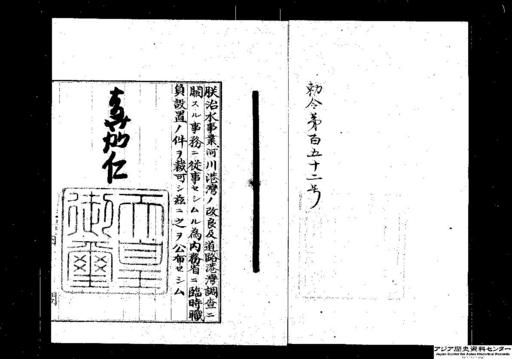 勅令第百五十二号
朕治水事業河川港湾ノ改良及道路港湾調査ニ
関スル事務ニ従事セシムル為内務省ニ臨時職
員設置ノ件ヲ裁可シ茲ニ之ヲ公布セシム
嘉仁
天皇
御璽
アジア歴史資料センター
Japan Center for Asian Historical Records